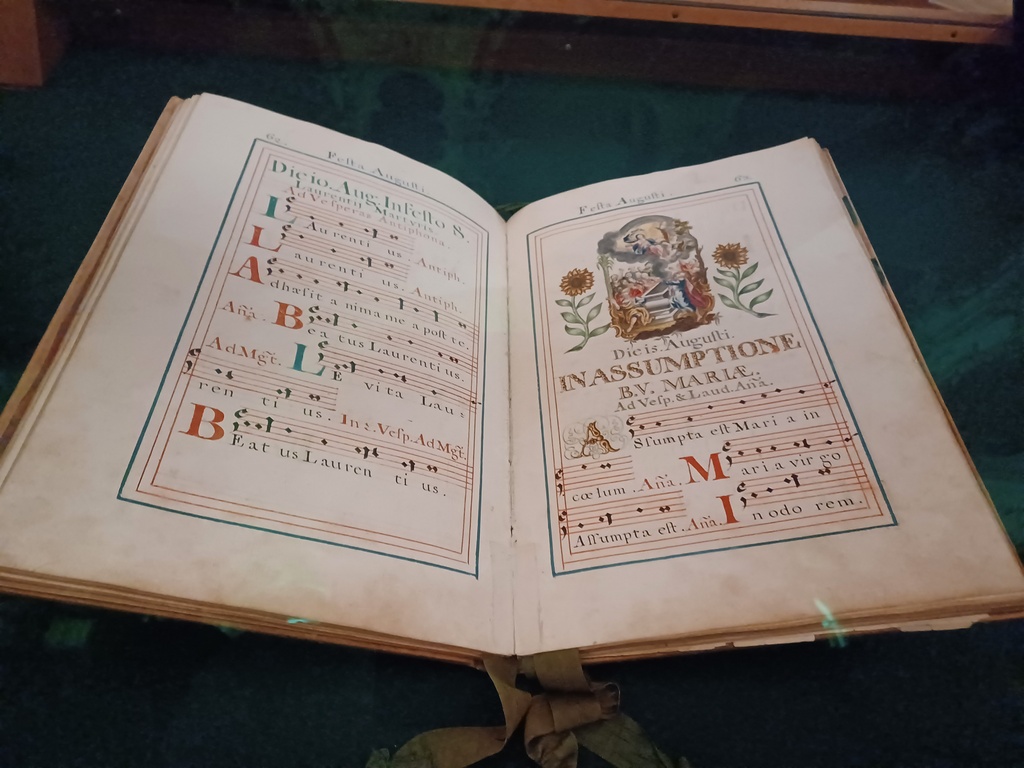 62.
Festa Augusti.
Die 10. Aug. In Festo S.
Laurentii Martyris.
Ad Vesperas Antiphona.
Laurenti us. Antiph.
Laurenti us. Antiph.
Adhæsit a nima me a post te.
Aña. Bea tus Laurentius.
Ad Mgt. LE vi ta Lau=
ren ti us. In 2. Vesp. Ad Mgt.
BEat us Lauren ti us.
Festa Augusti.
Die 15. Augusti.
IN ASSUMPTIONE
B.V. MARIÆ.
Ad Vesp. & Laud. Aña.
ASsumpta est Mari a in
cœlum. Aña. Maria vir go
Assumpta est. Aña. In odo rem.